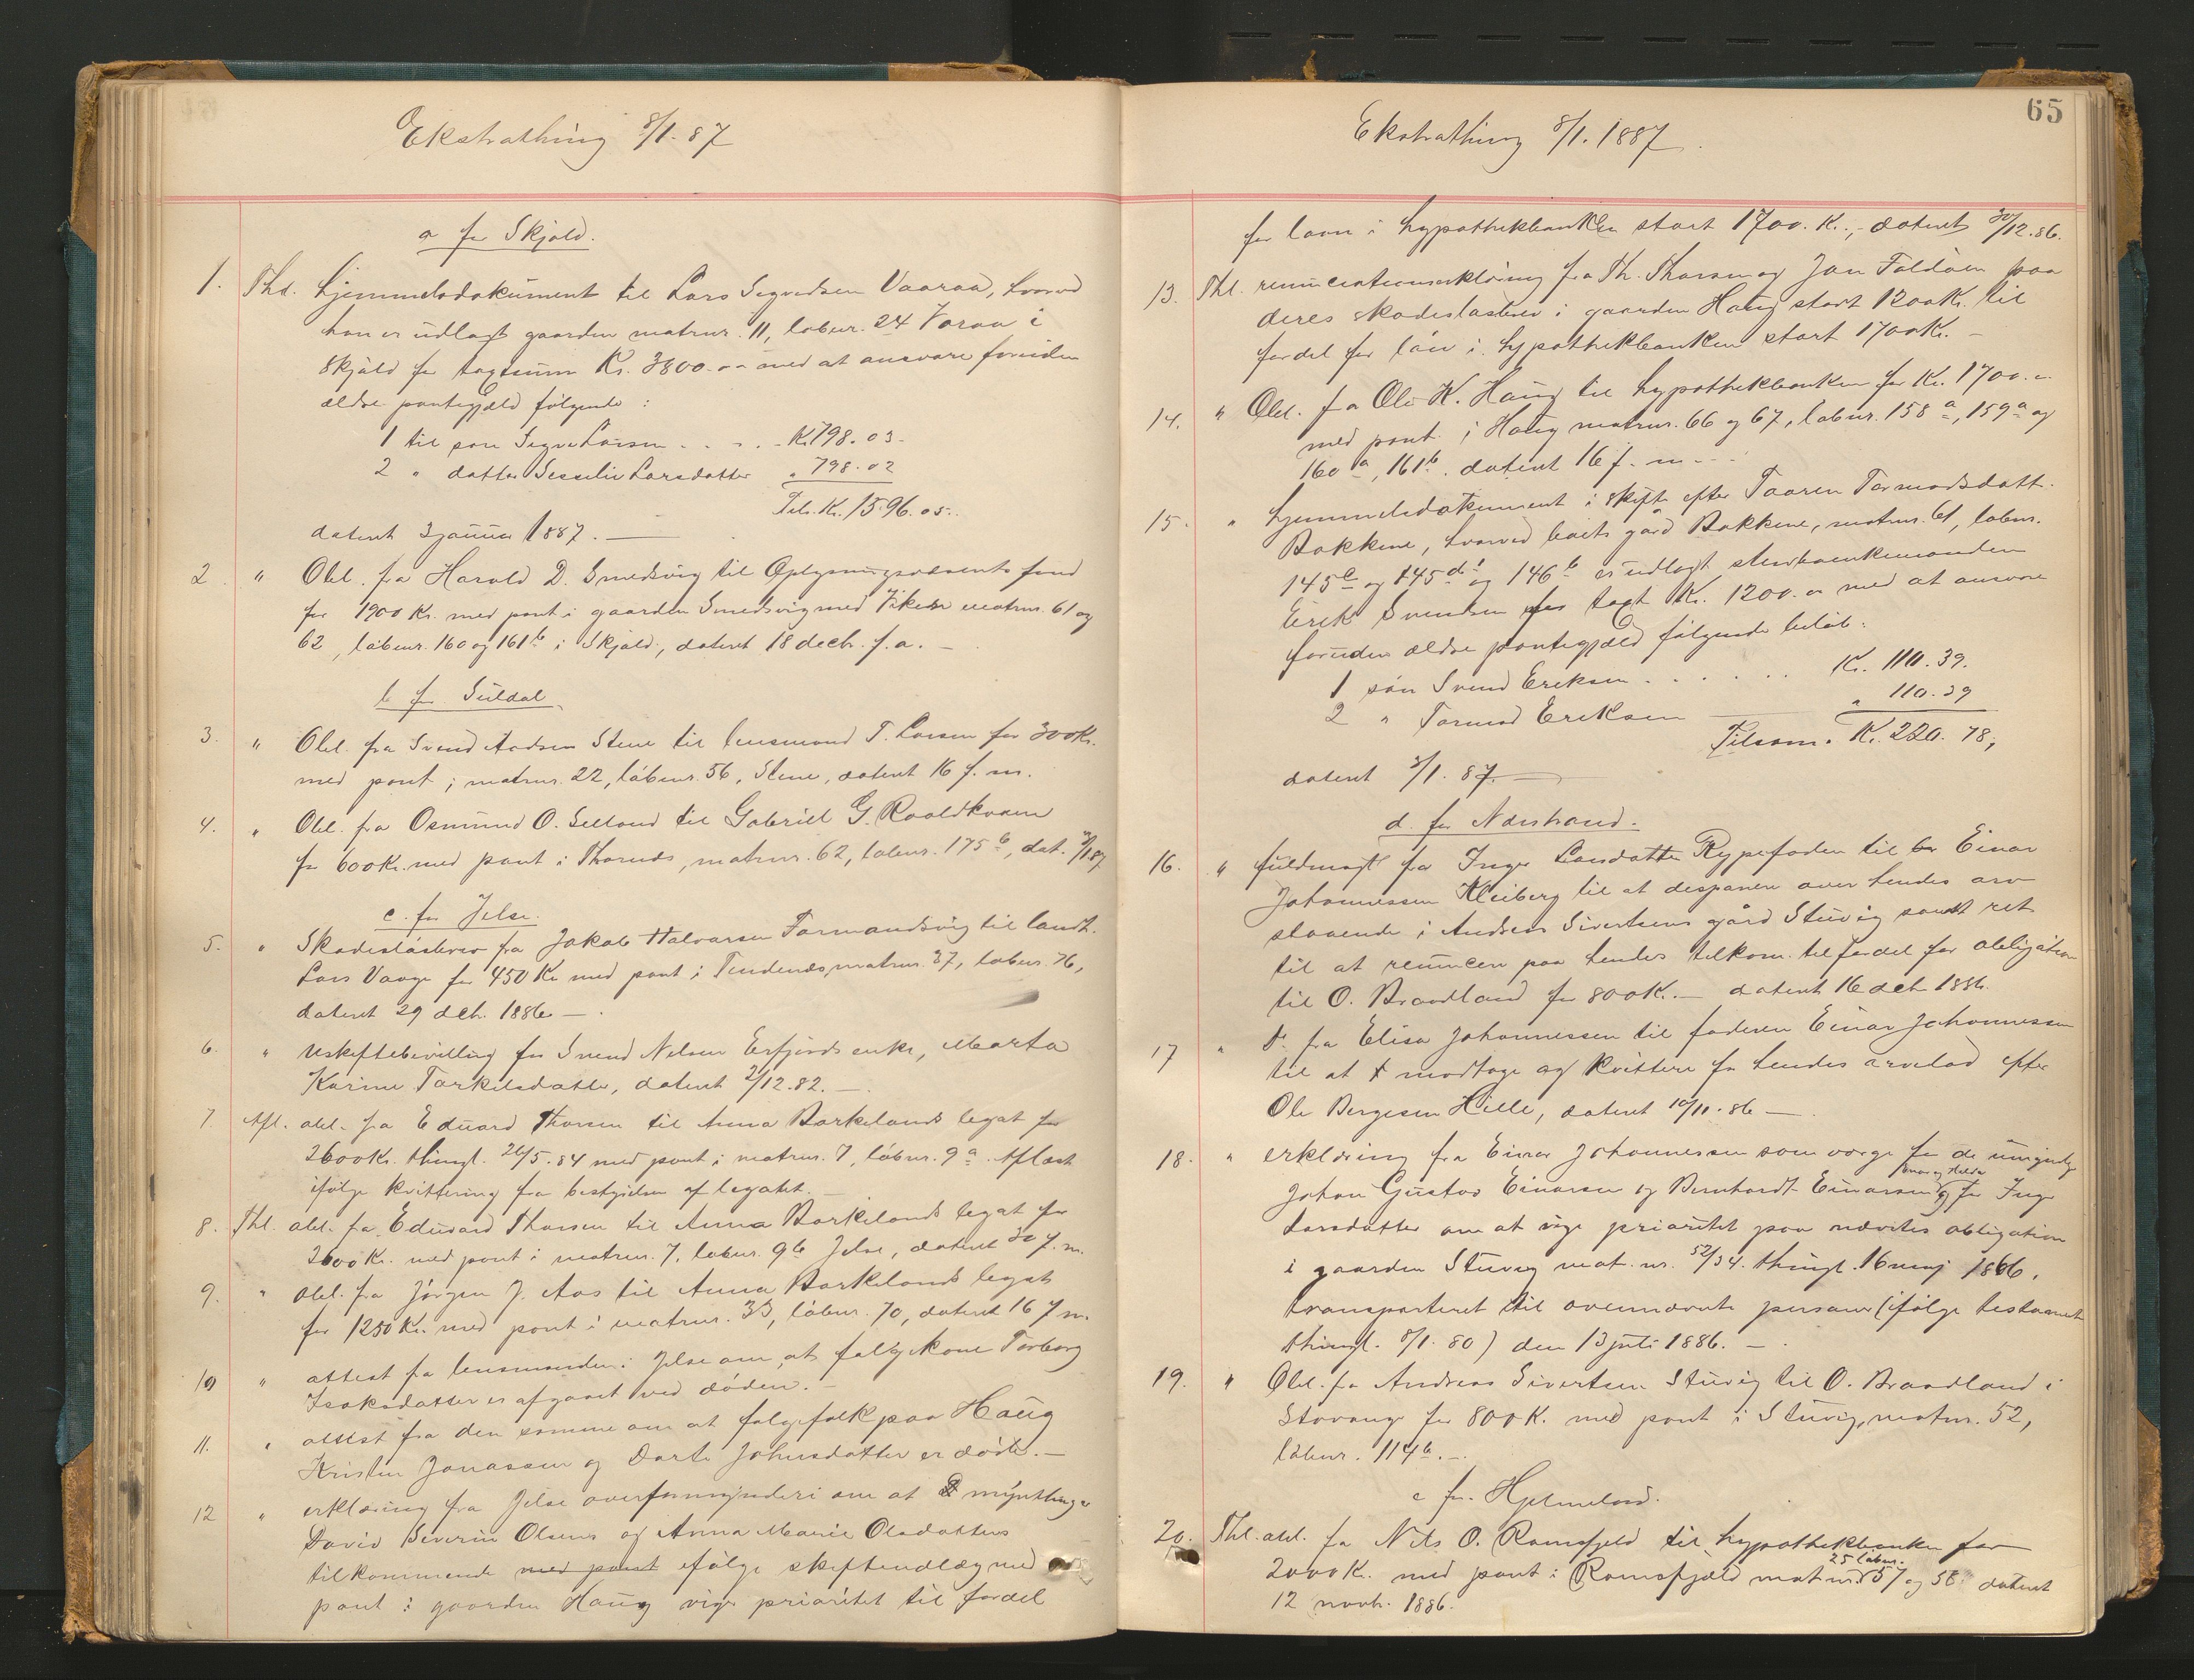 Ekstrathing 8/1. 87
a for Skjold.
1. Thl. hjemmelsdokument til Lars Segvedsen Vaaraa, hvorved
han er udlagt gaarden matrnr. 11, løbnr. 24 Voraa i
Skjold for taxtsum Kr. 3800.00 med at ansvare foruden
ældre pantegjæld følgende :
1 til søn Segve Larsen . . . . K. 798.03.
2 " datter Sesselie Larsdatter " 798.02
Tils. Kr. 1596.05..
dateret 3 januar 1887. —
2. " Obl. fra Harald D. Smedsvig til Oplysningsvæsenets fond
for 1900 Kr. med pant i gaarden Smedsvig med Vikene matrnr. 61 og
62, løbenr. 160 og 161b i Skjold, dateret 18 decbr. f.a. —
b for Suldal
3. " Obl. fra Svend Aadsen Stene til lensmand T. Larsen for 300 Kr.
med pant i matrnr. 22, løbenr. 56, Stene, dateret 16 f. m.
4. " Obl. fra Osmund O. Selland til Gabriel G. Roaldkvam
for 600 Kr. med pant i Thornæs, matrnr. 62, løbnr. 175b, dat. 3/1 87
c. for Jelse.
5. " Skadesløsbrev fra Jakob Halvorsen Tormandsvig til landh.
Lars Vaage for 450 Kr med pant i Tendenæs matrnr. 37, løbnr. 76,
dateret 29 dcb. 1886 — .
6. " Uskiftebevilling for Svend Nelsen Erfjords enke, Marta
Karine Torkelsdatter, dateret 2/12. 82. —
7. Afl. obl. fra Eduard Thorsen til Anna Barkelands legat for
2600 Kr. thingl. 26/5. 84 med pant i matrnr. 7, løbnr. 9a. Aflæst
ifølge kvittering fra bestyrelsen af legatet. —
8. Thl. obl. fra Eduard Thorsen til Anna Barkelands legat for
2600 Kr. med pant i matrnr. 7, løbnr. 9b Jelse, dateret 30 f. m.
9. " obl. fra Jørgen J. Aas til Anna Barkelands legat
for 1250 Kr. med pant i matrnr. 33, løbnr. 70, dateret 16 f m.
10 " attest fra lensmanden i Jelse om, at følgekone Torborg
Isaksdatter er afgaaet ved døden. —
11. " attest fra den samme om at følgefolk paa Haug
Kristen Jonassen og Dorte Johnsdatter er døde. —
12 " erklæring fra Jelse overformynderi om at myntlinge
David Severin Olsens og Anna Marie Olsdatters
tilkommende med pant ifølge skifteudlæg med
pant i gaarden Haug vige prioritet til fordel
65
Ekstrathing 8/1. 1887.
for laan i hypothekbanken stort 1700. K., - dateret 30/12. 86.
13. Thl. renunciationserklæring fra Th. Thorsen og Jon Foldøen paa
deres skadesløsbrev i gaarden Haug stort 1200 Kr. til
fordel for lån i hypothekbanken stort 1700 Kr. —
14. " Obl. fra Ole K. Haug til hypothekbanken for Kr. 1700. -
med pant i Haug matrnr. 66 og 67, løbnr. 158a, 159a og
160a, 161b. dateret 16 f. m. - -
15. " hjemmelsdokument i skifte efter Taaren Tormodsdatt.
Bakkene, hvorved boets gård Bakkene, matrnr. 61, løbnr.
145c og 145d1 og 146b er udlagt sterboenkemanden
Erik Svendsen for taxt Kr. 1200.00 med at ansvare
foruden ældre pantegjæld følgende beløb:
1 søn Svend Eriksen . . . . . . Kr. 110. 39.
2 " Tormod Eriksen — " 110. 39
Tilsam. K. 220. 78,
dateret 3/1. 87. —
d. for Nærstrand.
16. " fuldmagt fra Inger Larsdatter Rypefoden til Einar
Johannessen Kleiberg til at desponere over hendes arv
staaende i Andreas Sivertsens gård Stuvig samt ret
til at renuncere paa hendes tilkom. til fordel for obligation
til O. Braadland for 800 K. — dateret 16 dcb 1886.
17 " D. fra Elisa Johannessen til faderen Einar Johannessen
til at modtage og kvittere for hendes arvelod efter
Ole Bergesen Hille, dateret 10/11. 86 — .
18. " erklæring fra Einar Johannessen som værge for de umyndige
Johan Gustav Einarsen og Bernhardt Einarsen og for Inger
Larsdatter om at vige prioritet paa nævntes obligation
i gaarden Stuvig mat. nr. 52/54. thingl. 16 maj 1866,
transporteret til ovennævnte personer (ifølge testament
thingl. 8/1. 80) den 13 juli 1886. — .
19. " Obl. fra Andreas Sivertsen Stuvig til O. Braadland i
Stavanger for 800 K. med pant i Stuvig, matrnr. 52,
løbenr. 114b. —
e for Hjelmeland.
20. Thl. obl. fra Nils O. Ramsfjeld til hypothekbanken for
25 løbnr.
2000 K. med pant i Ramsfjeld matrnr. 57 og 58 dateret
12 novb. 1886.